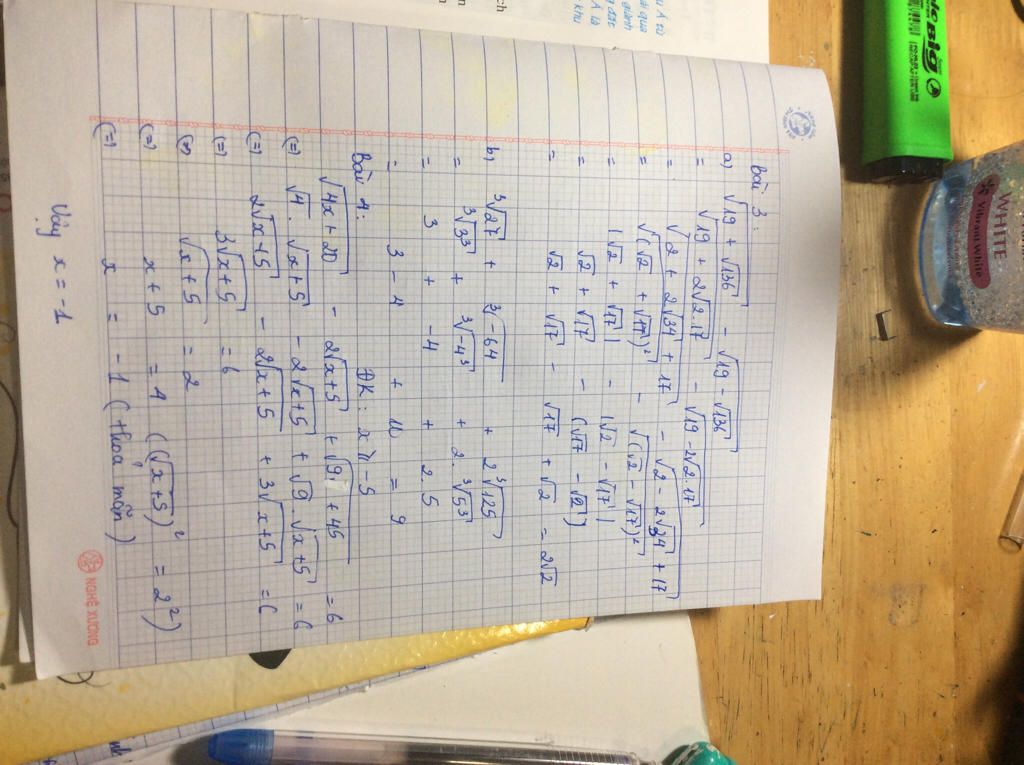 Bài 3:
a) √19 + √136 - √19 - √136
= √19 + 2√2.17 - √19 - 2√2.17
= √2 + 2√34 + 17 - √2 - 2√34 + 17
= √(√2 + √17)² - √(√2 - √17)²
= |√2 + √17| - |√2 - √17|
= √2 + √17 - (√17 - √2)
= √2 + √17 - √17 + √2 = 2√2
b) ³√27 + ³√-64 + 2³√125
= ³√3³ + ³√-4³ + 2.³√5³
= 3 + -4 + 2.5
= 3 - 4 + 10 = 9
Bài 4: ĐK: x ≥ -5
√4x + 20 - 2√x+5 + √9x + 45 = 6
(=) √4.√x+5 - 2√x+5 + √9.√x+5 = 6
(=) 2√x+5 - 2√x+5 + 3√x+5 = 6
(=) 3√x+5 = 6
(=) √x+5 = 2
(=) x + 5 = 4 ((√x+5)² = 2²)
(=) x = -1 (thoả mãn)
Vậy x = -1
NGHÊ XƯƠNG
Big
WHITE
Vibrant White